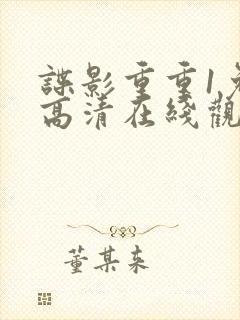 諜影重重1免
高清在綫觀
董某来